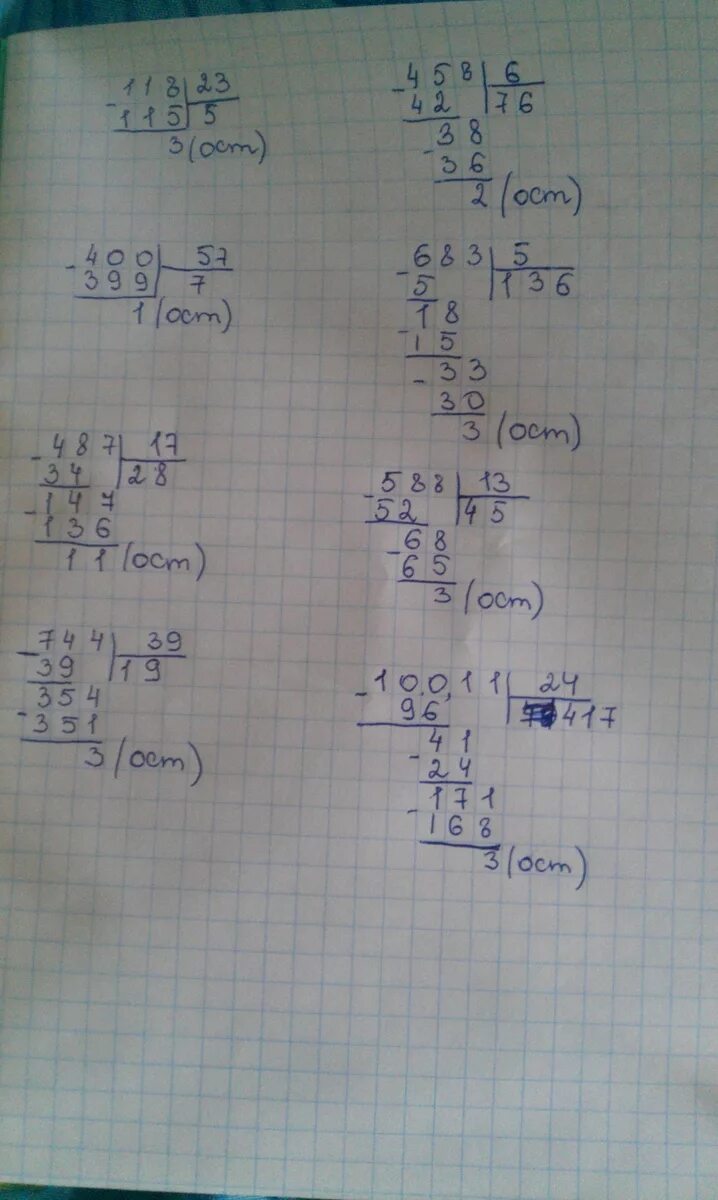 -118|23
115|5
3(ост)
-458|6
42|76
-38
36
2(ост)
-400|57
399|7
1(ост)
-683|5
5|136
-18
15
-33
30
3(ост)
-487|17
34|28
-147
136
11(ост)
-588|13
52|45
-68
65
3(ост)
-744|39
39|19
-354
351
3(ост)
-10011|24
96|417
-41
24
-171
168
3(ост)